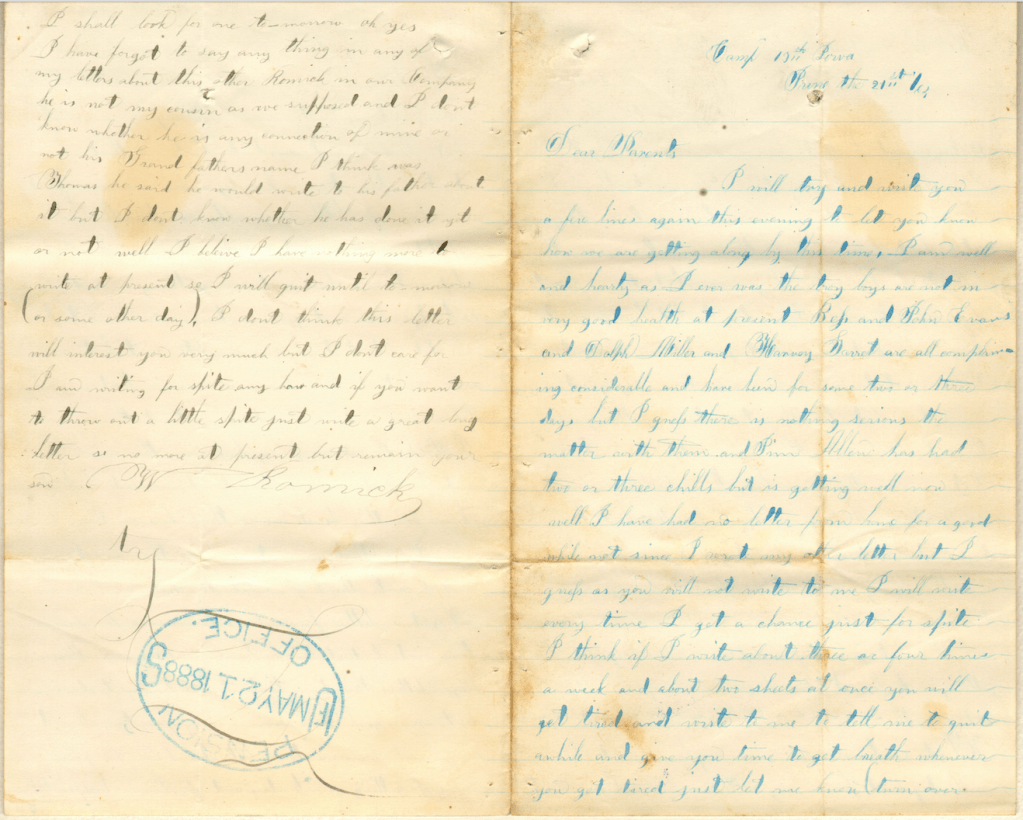 Camp 13th Iowa
June the 21st /63
Dear Parents
I will try and write you
a few lines again this evening to let you know
how we are getting along by this time, I am well
and hearty as I ever was the boys are not in
very good health at present Bess and John Evans
and Dolph Miller and Garrot are all complain-
ing considerable and have been for some two or three
days but I guess there is nothing serious the
matter with them and Allen has had
two or three chills but is getting well now
well I have had no letter from home for a good
while not since I wrote my other letter but I
guess as you will not write to me I will write
every time I get a chance just for spite
I think if I write about three or four times
a week and about two sheets at once you will
get tired and write to me to tell me to quit
while and give you time to get breath whenever
you get tired just let me know (turn over.
I shall look for one to-morrow oh yes
I have forgot to say any thing in any of
my letters about this other Romick in our Company
he is not my cousin as we supposed and I dont
know whether he is any connection of mine or
not his Grand fathers name I think was
Thomas he said he would write to his father about
it but I dont know whether he has done it yet
or not well I believe I have nothing more to
write at present so I will quit until to-morrow
(or some other day), I dont think this letter
will interest you very much but I dont care for
I am writing for spite any how and if you want
to throw out a little spite just write a great long
letter so no more at present but remain your
son W Romick
PENSION
MAY 21 1888
OFFICE.